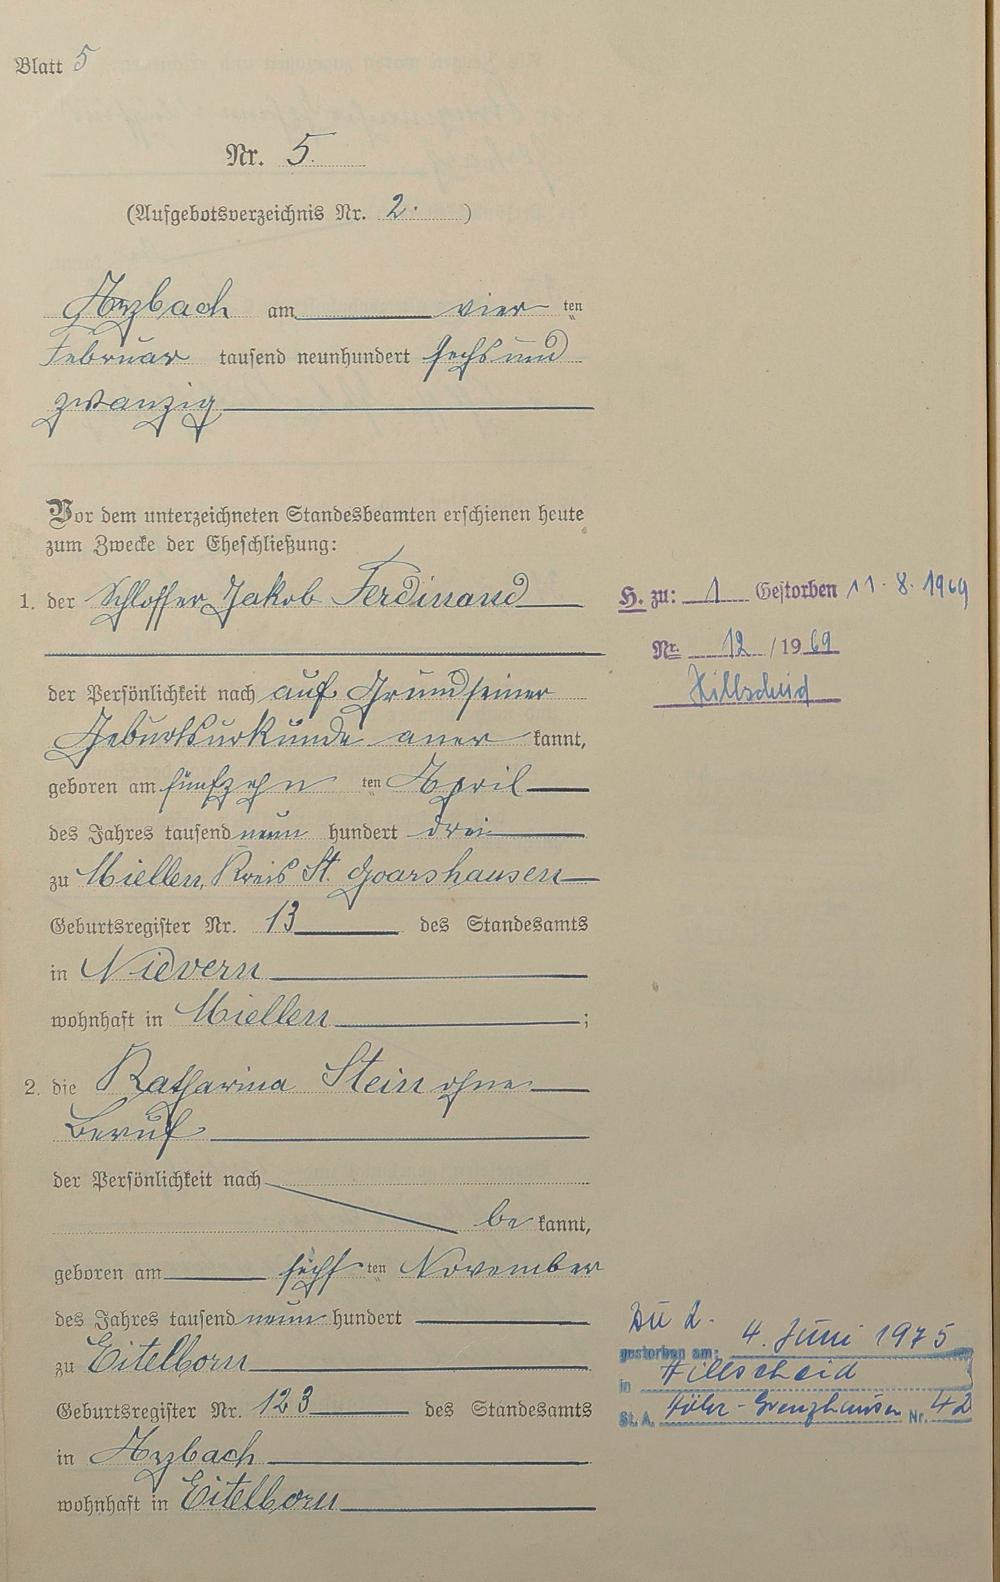 Blatt 5
Nr. 5.
(Aufgebotsverzeichnis Nr. 2. )
Arzbach am vier ten
Februar tausend neunhundert sechs und
zwanzig
Vor dem unterzeichneten Standesbeamten erschienen heute
zum Zwecke der Eheschließung:
1. der Schlosser Jakob Ferdinand
H. zu: 1 Gestorben 11. 8. 1969
Nr. 12 / 1969
Hillscheid
der Persönlichkeit nach auf Grund seiner
Geburtsurkunde aner kannt,
geboren am fünfzehn ten April
des Jahres tausend neun hundert drei
zu Miellen, Kreis St. Goarshausen
Geburtsregister Nr. 13 des Standesamts
in Nievern
wohnhaft in Miellen ;
2. die Katharina Stein ohne
Beruf
der Persönlichkeit nach
be kannt,
geboren am sechs ten November
des Jahres tausend neun hundert
zu Eitelborn
Geburtsregister Nr. 123 des Standesamts
in Arzbach
wohnhaft in Eitelborn
Zu 2.
gestorben am: 4. Juni 1975
in Hillscheid
St. A. Höhr-Grenzhausen Nr. 42